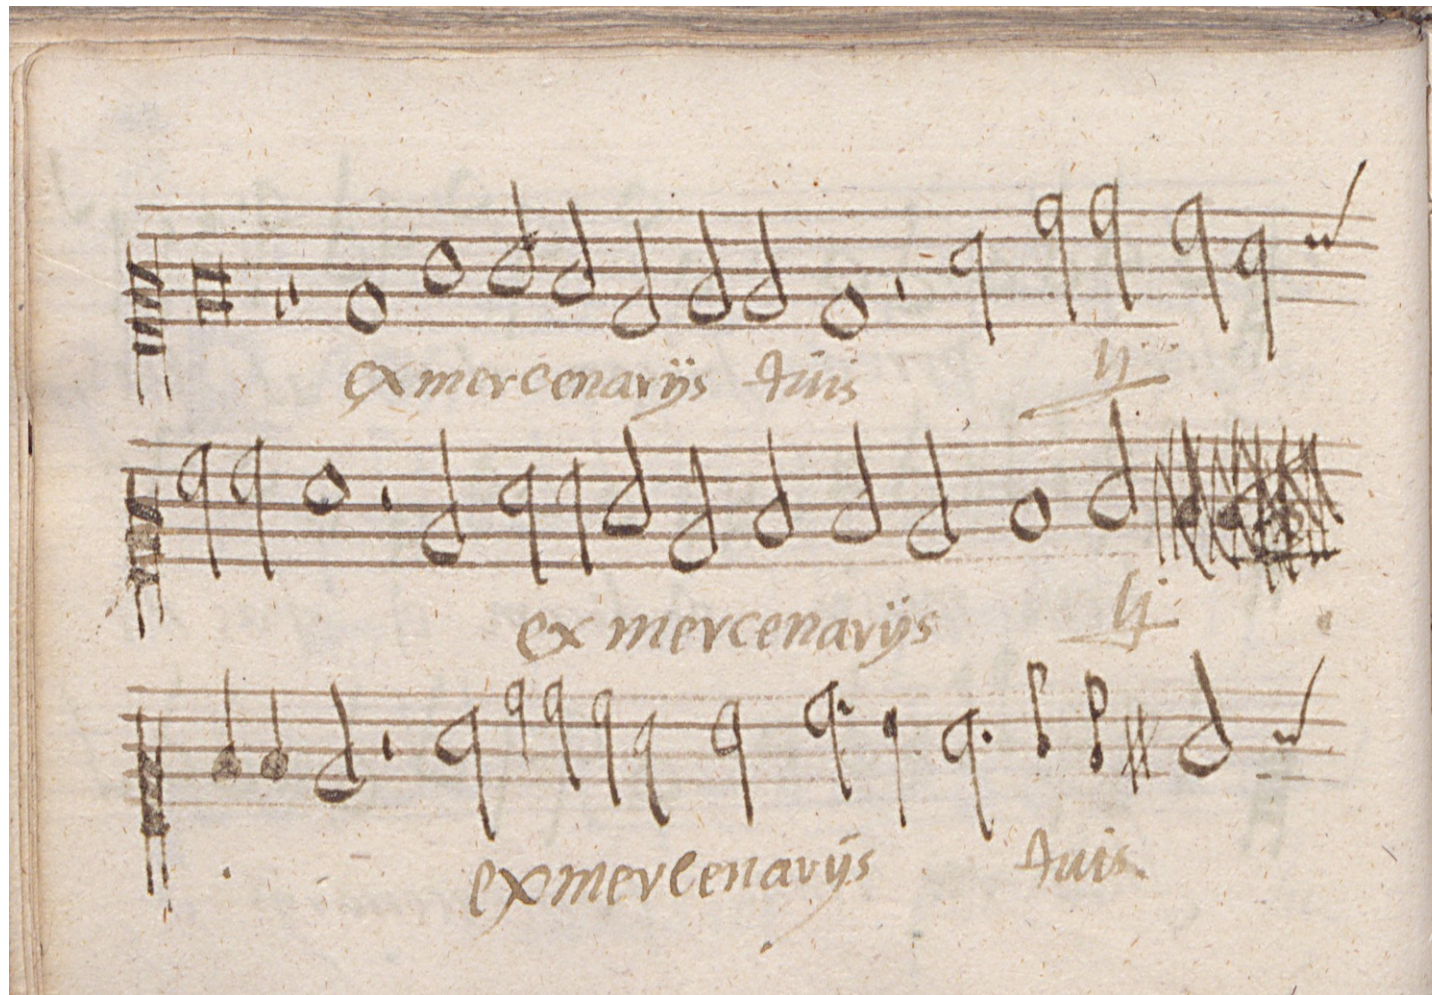 ex mercenarijs tuis ij
ex mercenarijs ij
ex mercenarijs tuis